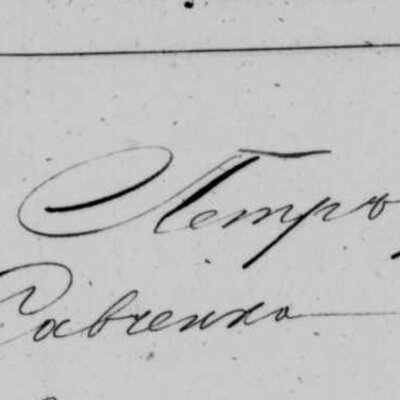 Петръ
Савченко